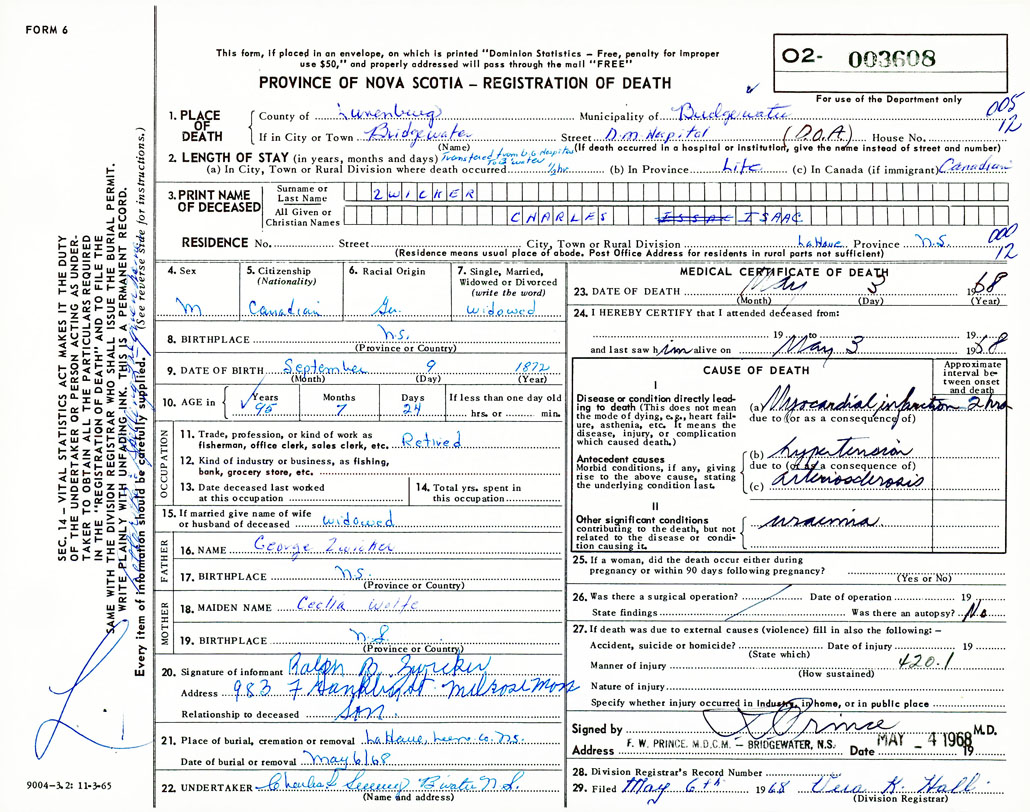 FORM 6
This form, if placed in an envelope, on which is printed "Dominion Statistics – Free, penalty for improper
use $50," and properly addressed will pass through the mail "FREE"
O2- 003608
PROVINCE OF NOVA SCOTIA – REGISTRATION OF DEATH
For use of the Department only
005
12
1. PLACE OF DEATH
County of Lunenburg Municipality of Bridgewater
If in City or Town Bridgewater Street D.M. Hospital (D.O.A) House No.
(Name) (If death occurred in a hospital or institution, give the name instead of street and number)
2. LENGTH OF STAY (in years, months and days) Transfered from V.G. Hospital
To B'water
(a) In City, Town or Rural Division where death occurred ½ hr (b) In Province Life (c) In Canada (if immigrant) Canadian
3. PRINT NAME OF DECEASED
Surname or Last Name ZWICKER
All Given or Christian Names CHARLES ISSAC ISAAC
RESIDENCE No. Street City, Town or Rural Division LaHave Province N.S.
(Residence means usual place of abode. Post Office Address for residents in rural parts not sufficient)
000
12
4. Sex M
5. Citizenship (Nationality) Canadian
6. Racial Origin Ger.
7. Single, Married, Widowed or Divorced (write the word) Widowed
8. BIRTHPLACE N.S.
(Province or Country)
9. DATE OF BIRTH September 9 1872
(Month) (Day) (Year)
10. AGE in Years 95 Months 7 Days 24 If less than one day old
hrs. or min.
OCCUPATION
11. Trade, profession, or kind of work as
fisherman, office clerk, sales clerk, etc. Retired
12. Kind of industry or business, as fishing,
bank, grocery store, etc.
13. Date deceased last worked
at this occupation
14. Total yrs. spent in
this occupation
15. If married give name of wife
or husband of deceased widowed
FATHER
16. NAME George Zwicker
17. BIRTHPLACE N.S.
(Province or Country)
MOTHER
18. MAIDEN NAME Cecilia Wolfe
19. BIRTHPLACE N.S.
(Province or Country)
20. Signature of informant Ralph B. Zwicker
Address 983 Melrose Mass
Relationship to deceased Son.
21. Place of burial, cremation or removal LaHave, Lun. Co. N.S.
Date of burial or removal May 6/68
22. UNDERTAKER Charles S B'water N.S.
(Name and address)
MEDICAL CERTIFICATE OF DEATH
23. DATE OF DEATH May 3 1968
(Month) (Day) (Year)
24. I HEREBY CERTIFY that I attended deceased from:
19 to
and last saw him alive on May 3 1968
CAUSE OF DEATH
Approximate interval between onset and death
I
Disease or condition directly leading to death (This does not mean
the mode of dying, e.g., heart failure, asthenia, etc. It means the
disease, injury, or complication
which caused death.)
(a) Myocardial infarction 2 hrs
due to (or as a consequence of)
Antecedent causes
Morbid conditions, if any, giving
rise to the above cause, stating
the underlying condition last.
(b) hypertension
due to (or as a consequence of)
(c) arteriosclerosis
II
Other significant conditions
contributing to the death, but not
related to the disease or condition causing it.
uraemia
25. If a woman, did the death occur either during
pregnancy or within 90 days following pregnancy?
(Yes or No)
26. Was there a surgical operation? Date of operation 19
State findings Was there an autopsy? No
27. If death was due to external causes (violence) fill in also the following: –
Accident, suicide or homicide? Date of injury 19
(State which)
Manner of injury 420.1
(How sustained)
Nature of injury
Specify whether injury occurred in Industry, in home, or in public place
Signed by F Prince M.D.
Address F. W. PRINCE, M.D.C.M. – BRIDGEWATER, N.S. Date MAY – 4 1968 19
28. Division Registrar's Record Number
29. Filed May 6th 1968 Vera K. Hall
(Division Registrar)
SEC. 14 – VITAL STATISTICS ACT MAKES IT THE DUTY
OF THE UNDERTAKER OR PERSON ACTING AS UNDER-
TAKER TO OBTAIN ALL THE PARTICULARS REQUIRED
IN THE "REGISTRATION OF DEATH" AND TO FILE THE
SAME WITH THE DIVISION REGISTRAR WHO SHALL ISSUE THE BURIAL PERMIT.
WRITE PLAINLY WITH UNFADING INK. THIS IS A PERMANENT RECORD.
Every item of information should be carefully supplied. (See reverse side for instructions.)
9004-3.2: 11-3-65